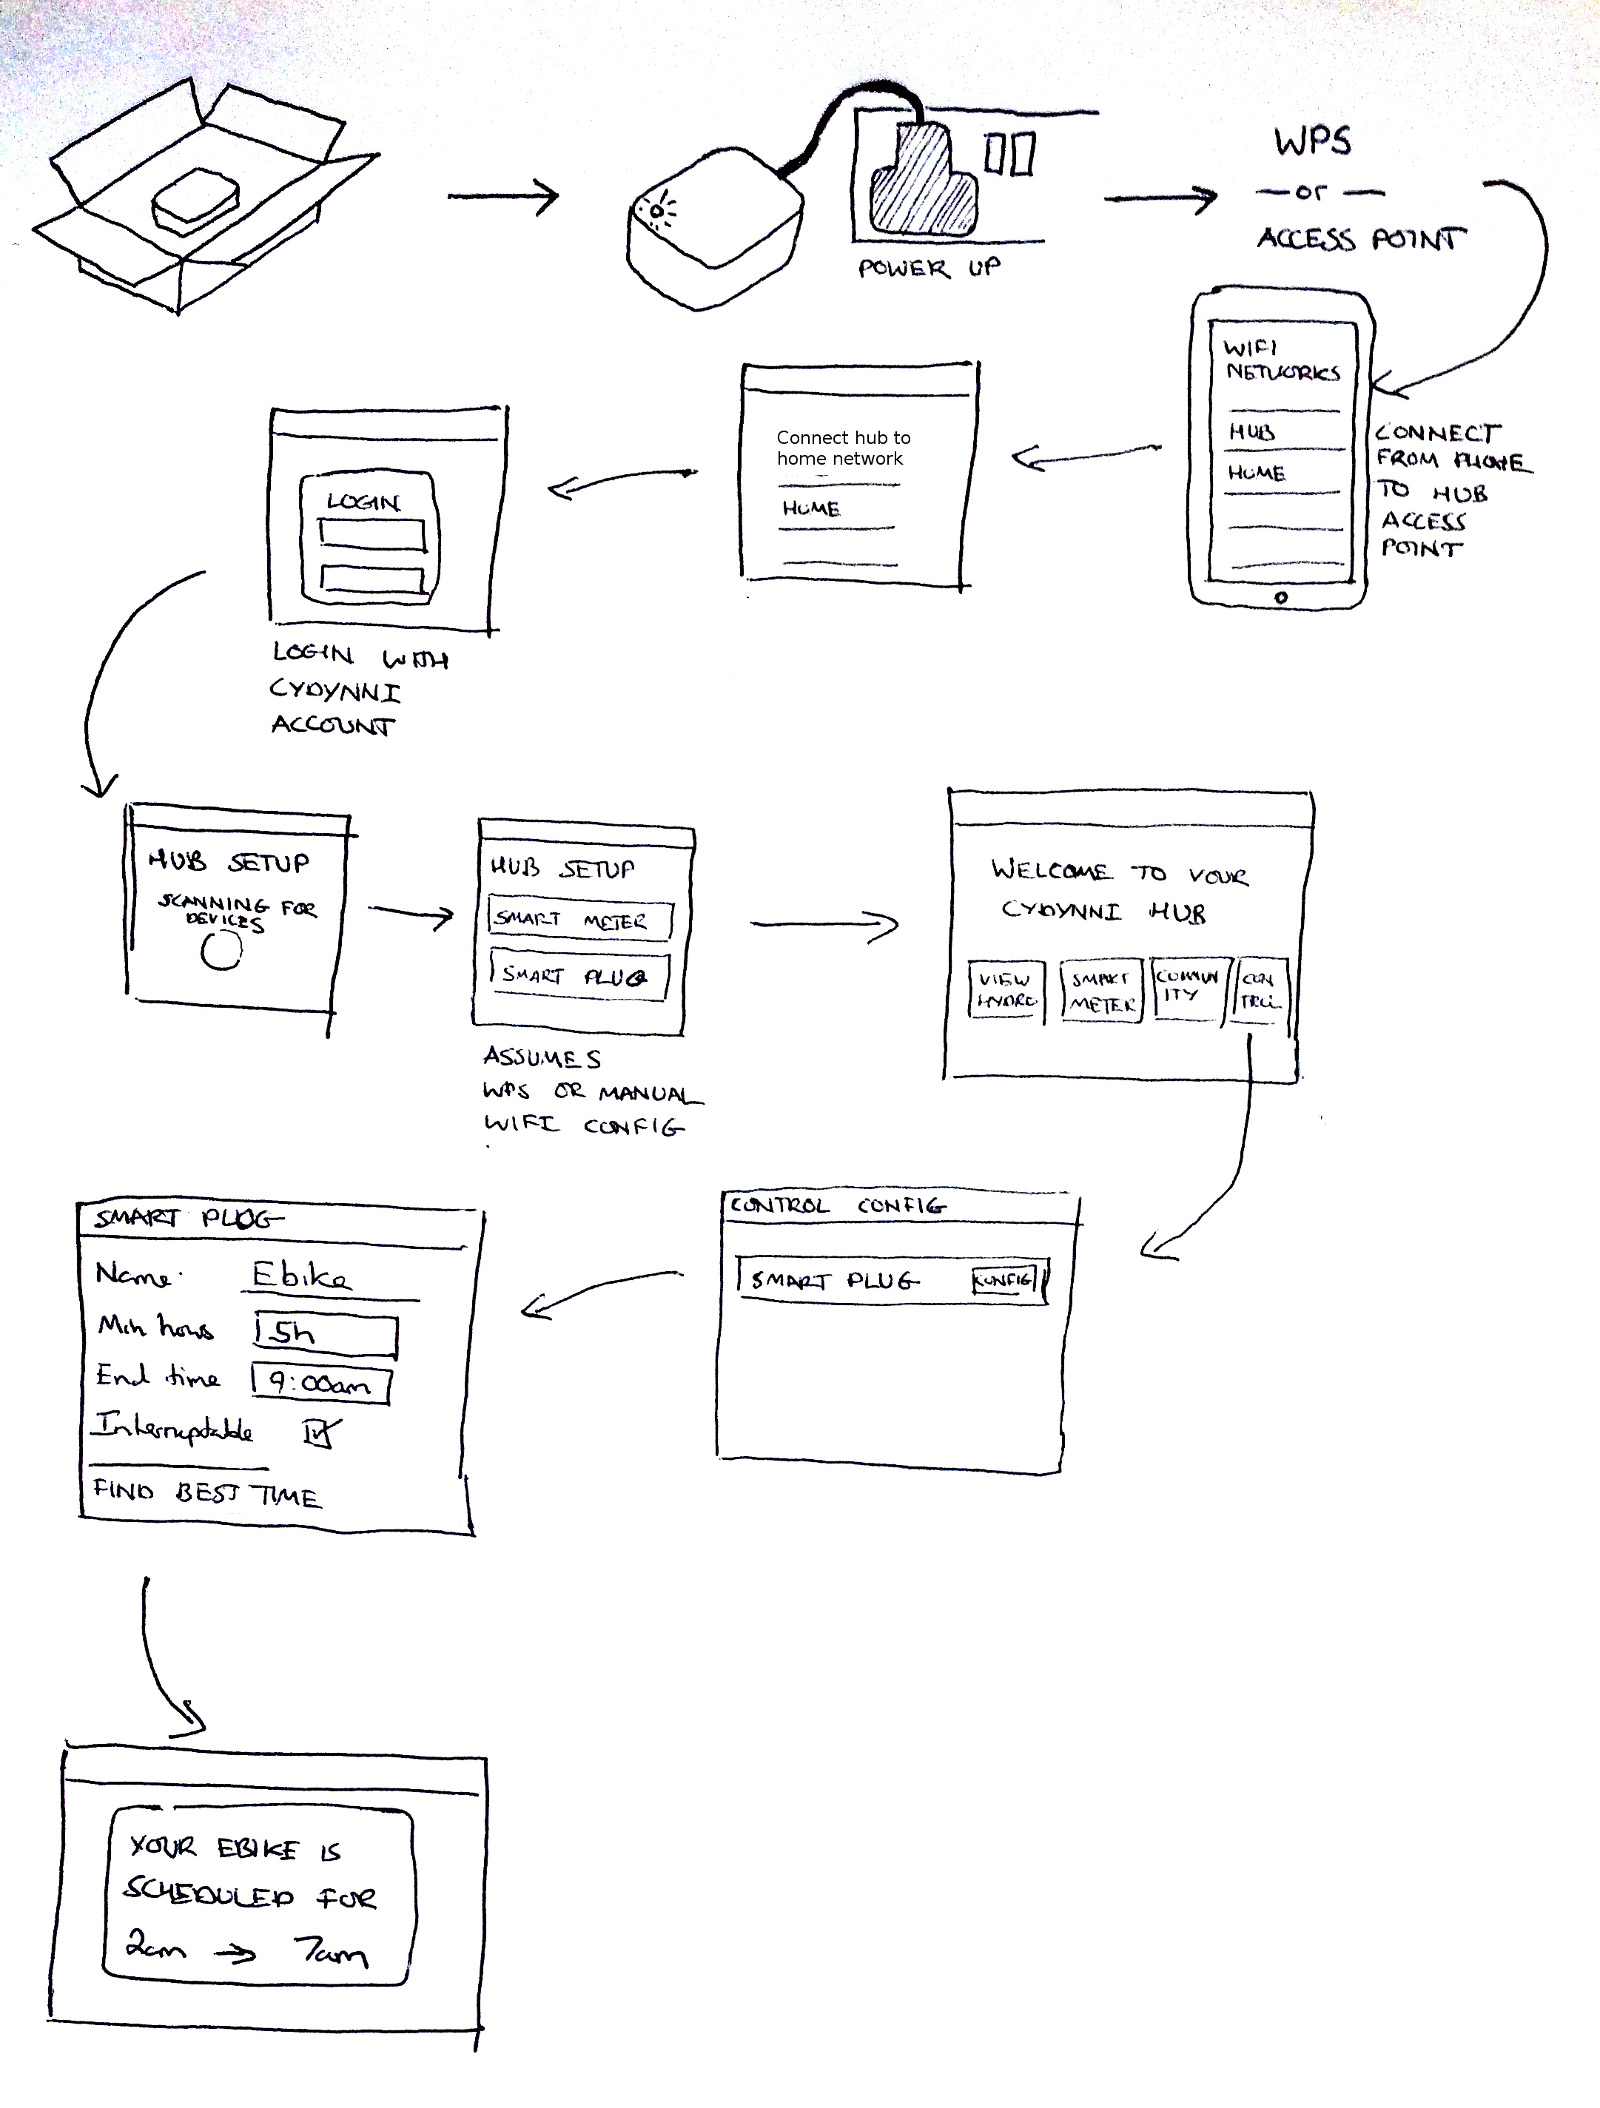 POWER UP
WPS
— or —
ACCESS POINT
WIFI
NETWORKS
HUB
HOME
CONNECT
FROM PHONE
TO HUB
ACCESS
POINT
Connect hub to
home network
HOME
LOGIN
LOGIN WITH
CYDYNNI
ACCOUNT
HUB SETUP
SCANNING FOR
DEVICES
HUB SETUP
SMART METER
SMART PLUG
ASSUMES
WPS OR MANUAL
WIFI CONFIG
WELCOME TO YOUR
CYDYNNI HUB
VIEW
HYDRO
SMART
METER
COMMUN
ITY
CON
TROL
CONTROL CONFIG
SMART PLUG CONFIG
SMART PLUG
Name: Ebike
Min hours 5h
End time 9:00am
Interruptable
FIND BEST TIME
YOUR EBIKE IS
SCHEDULED FOR
2am → 7am